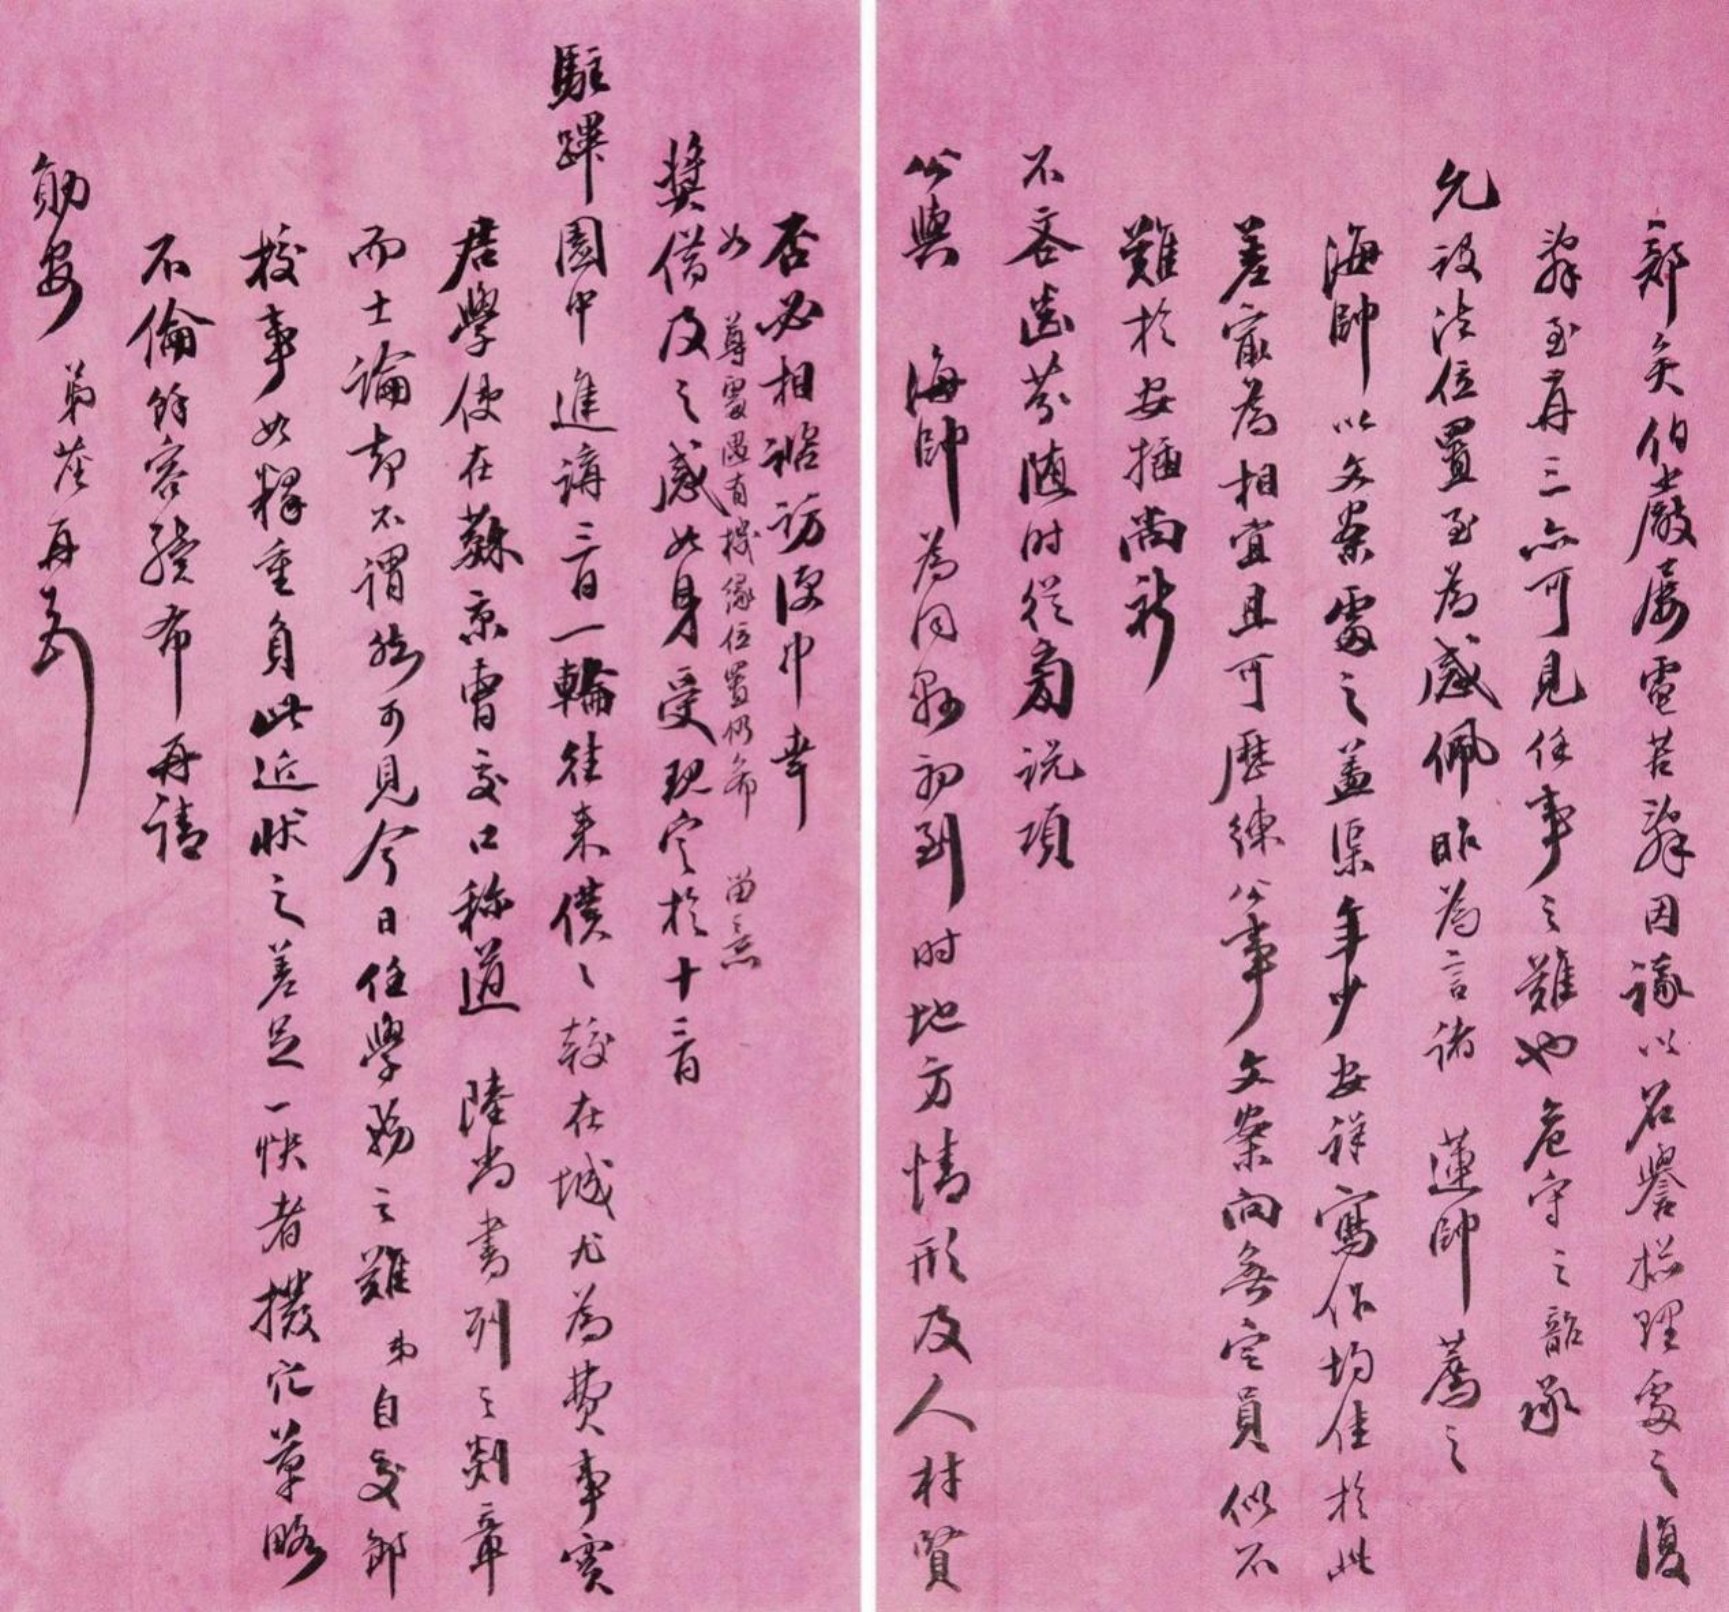 鄭炎伯嚴屢電苦辭因議以名譽總理處之復
辭至再三亦可見任事之難也危守之韶承
允設法位置至為感佩昨為言諸 蓮帥薦之
海帥以文案處之蓋渠年少安詳寫作均佳於此
差最為相宜且可歷練公事文案向無定員似不
難於安插尚祈
不吝齒芬隨時從旁說項
公與 海帥為同 初到時地方情形及人材賢
否必相諮訪便中幸
如 尊處遇有機緣位置仍希 留意
獎借及之感如身受現定於十二日
駐蹕園中進講三日一輪往來僕僕較在城尤為費事實
君學使在蘇京曹交口稱道 陸尚書列之剡章
而士論却不謂然可見今日任學務之難弟自交卸
校事如釋重負此近狀之差足一快者撥冗草略
不倫餘容續布再請
勛安 弟 再頓